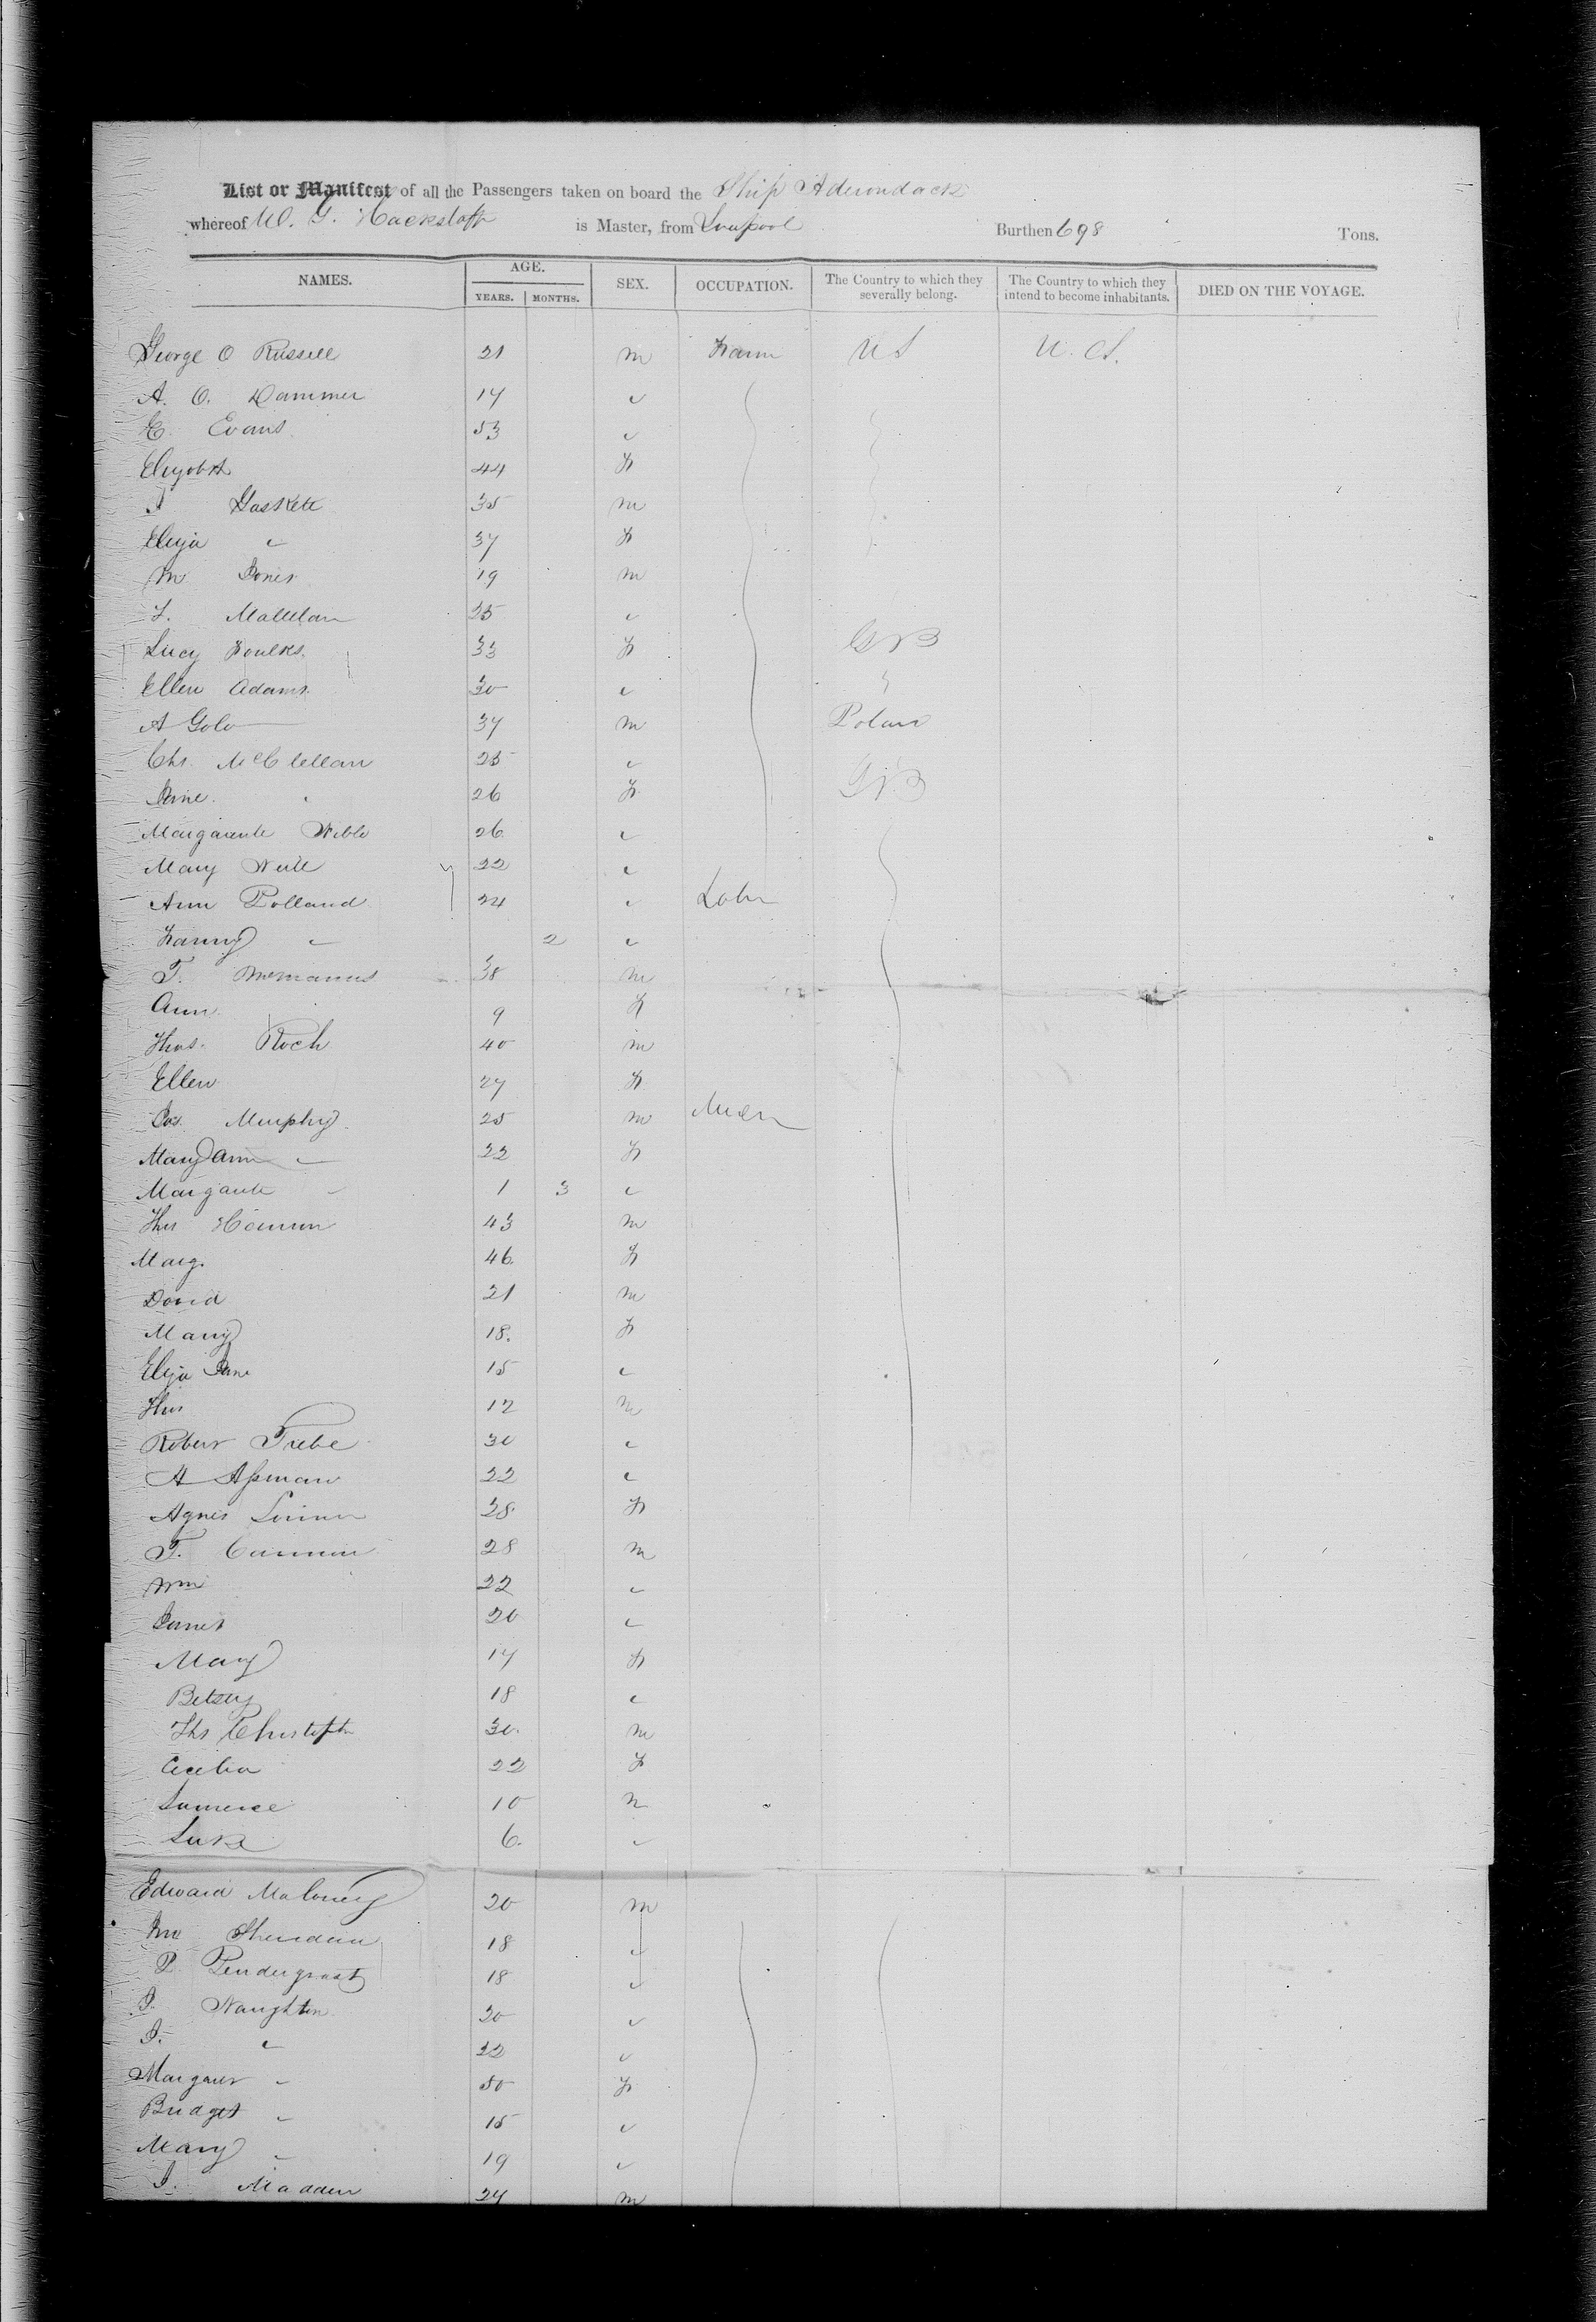 List or Manifest of all the Passengers taken on board the Ship Aderondack
whereof W. G. Hackstaff is Master, from Liverpool Burthen 698 Tons.
NAMES. AGE. YEARS. MONTHS. SEX. OCCUPATION. The Country to which they severally belong. The Country to which they intend to become inhabitants. DIED ON THE VOYAGE.
George O Russell 21 m Farm U S U. S.
A. O. Dammer 17 "
E. Evans 53 "
44 F
Gaskell 35 m
Eliza " 37 F
M Jones 19 m
25 "
Lucy Foulks. 33 F G B
Ellen Adams. 30 " "
A Golo 37 m Polan
Chs. McClellan 25 "
Jane. " 26 F G B
Margarete 26 "
Mary 22 "
Ann Polland 24 " Labr
Fanny " 2 "
T. McManus 38 m
Ann 9 F
Thos. Roch 40 m
Ellen 27 F
Jas. Murphy 25 m
Mary Ann " 22 F
Margarete " 1 3 "
Thos 43 m
Marg. 46. F
David 21 m
Mary 18. F
Eliza Jane 15 "
Thos 12 m
Robert 30 "
A Assman 22 "
Agnes 28 F
T. Cannon 28 m
Wm 22 "
James 20 "
Mary 17 F
Betsey 18 "
Ths Christoph 30. m
Cecelia 22 F
10 m
Luke 6. "
Edward Maloney 20 m
Jno Sheridan 18 "
P. Pendergrast 18 "
J. Naughton 20 "
J. " 22 "
Margaret " 50 F
Bridget " 15 "
Mary " 19 "
J. Madden 24 m